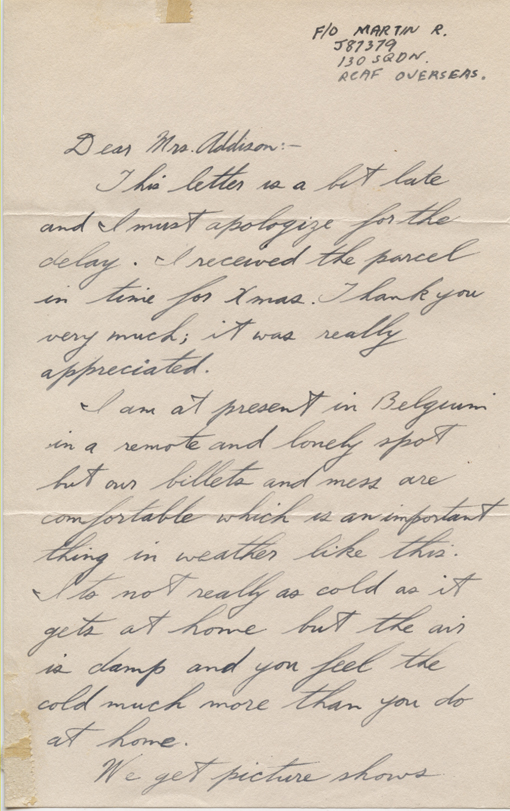 F/O MARTIN R.
J87379
130 SQDN.
RCAF OVERSEAS.
Dear Mrs. Addison:-
This letter is a bit late
and I must apologize for the
delay. I received the parcel
in time for Xmas. Thank you
very much; it was really
appreciated.
I am at present in Belgium
in a remote and lonely spot
but our billets and mess are
comfortable which is an important
thing in weather like this.
Its not really as cold as it
gets at home but the air
is damp and you feel the
cold much more than you do
at home.
We get picture shows